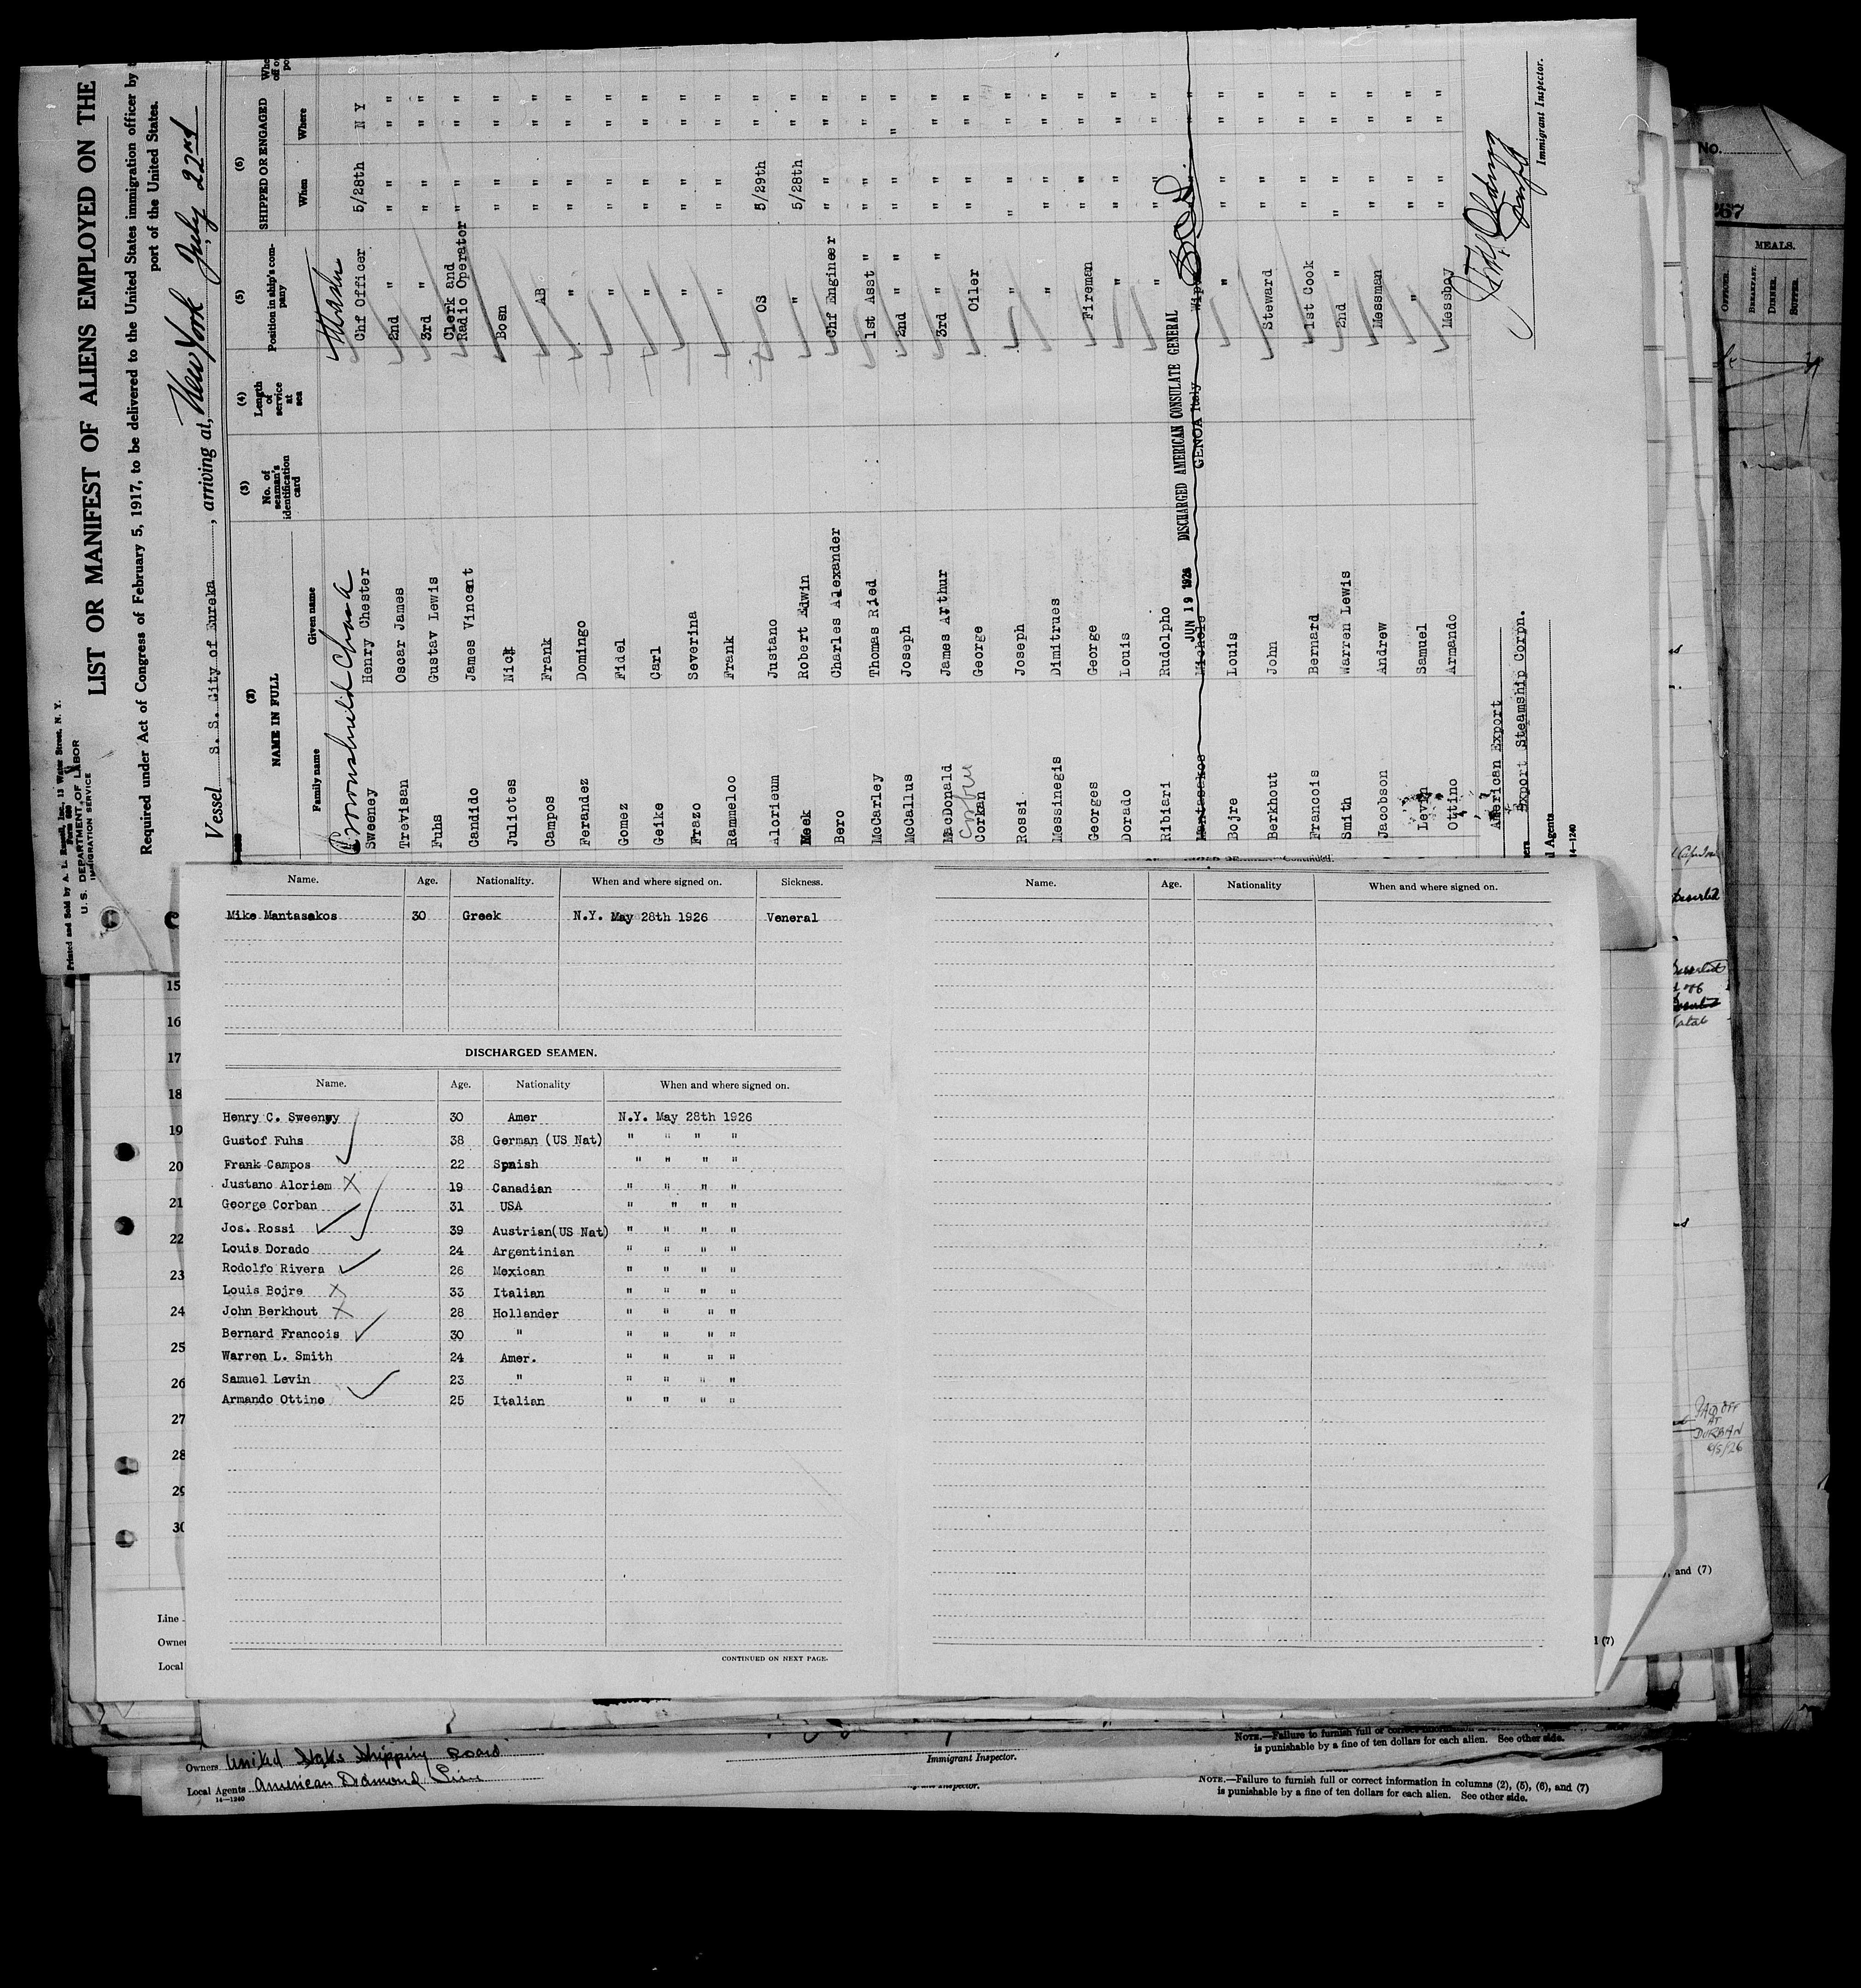 Printed and Sold by A. L. Russell, Inc., 13 Water Street, N. Y.
Form 689
U. S. DEPARTMENT OF LABOR
IMMIGRATION SERVICE
LIST OR MANIFEST OF ALIENS EMPLOYED ON THE
Required under Act of Congress of February 5, 1917, to be delivered to the United States immigration officer by
port of the United States.
Vessel S. S. City of Eureka, arriving at, New York July 22nd
(2) (3) (4) (5) (6)
NAME IN FULL No. of seaman's identification card Length of service at sea Position in ship's company SHIPPED OR ENGAGED
Family name Given name When Where
Master
Sweeney Henry Chester Chf Officer 5/28th N Y
Trevisan Oscar James 2nd " " " " "
Fuhs Gustav Lewis 3rd " " " " "
Candido James Vincent Clerk and Radio Operator " " " "
Juliotes Nick Bosn " " " "
Campos Frank AB " " " "
Ferandez Domingo " " " " "
Gomez Fidel " " " " "
Geike Carl " " " " "
Frazo Severina " " " " "
Rammeloo Frank " " " " "
Alorieum Justano OS 5/29th " "
Meek Robert Edwin " 5/28th " "
Bero Charles Alexander Chf Engineer " " " "
McCarley Thomas Ried 1st Asst " " " " "
McCallus Joseph 2nd " " " " " "
MacDonald James Arthur 3rd " " " " " "
Corkan George Oiler " " " "
Rossi Joseph " " " " "
Messinegis Dimitrues " " " " "
Georges George Fireman " " " "
Dorado Louis " " " " "
Ribiari Rudolpho " " " " "
JUN 19 1926 DISCHARGED AMERICAN CONSULATE GENERAL
Mantasakos Michole GENOA Italy
Bojre Louis " " " " "
Berkhout John Steward " " " "
Francois Bernard 1st Cook " " " "
Smith Warren Lewis 2nd " " " " "
Jacobson Andrew Messman " " " "
Levin Samuel " " " " "
Ottino Armando Messboy " " " "
American Export
Export Steamship Corpn.
Immigrant Inspector.
l Agents
14—1240
Name. Age. Nationality. When and where signed on. Sickness.
Mike Mantasakos 30 Greek N.Y. May 28th 1926 Veneral
DISCHARGED SEAMEN.
Name. Age. Nationality When and where signed on.
Henry C. Sweenwy 30 Amer N.Y. May 28th 1926
Gustof Fuhs 38 German (US Nat) " " " "
Frank Campos 22 Spnish " " " "
Justano Aloriem 19 Canadian " " " "
George Corban 31 USA " " " "
Jos. Rossi 39 Austrian(US Nat) " " " "
Louis Dorado 24 Argentinian " " " "
Rodolfo Rivera 26 Mexican " " " "
Louis Bojre 33 Italian " " " "
John Berkhout 28 Hollander " " " "
Bernard Francois 30 " " " " "
Warren L. Smith 24 Amer. " " " "
Samuel Levin 23 " " " " "
Armando Ottino 25 Italian " " " "
CONTINUED ON NEXT PAGE.
Name. Age. Nationality When and where signed on.
15
16
17
18
19
20
21
22
23
24
25
26
27
28
29
30
Line
Owne
Local
No.
267
MEALS.
OFFICER.
BREAKFAST.
DINNER.
SUPPER.
Deserted
PAID OFF
AT
DURBAN
6/5/26
, and (7)
l (7)
Owners United States Shipping Board
Local Agents American Diamond Line
14—1240
Immigrant Inspector.
NOTE.—Failure to furnish full or correct information
is punishable by a fine of ten dollars for each alien. See other side.
NOTE.—Failure to furnish full or correct information in columns (2), (5), (6), and (7)
is punishable by a fine of ten dollars for each alien. See other side.